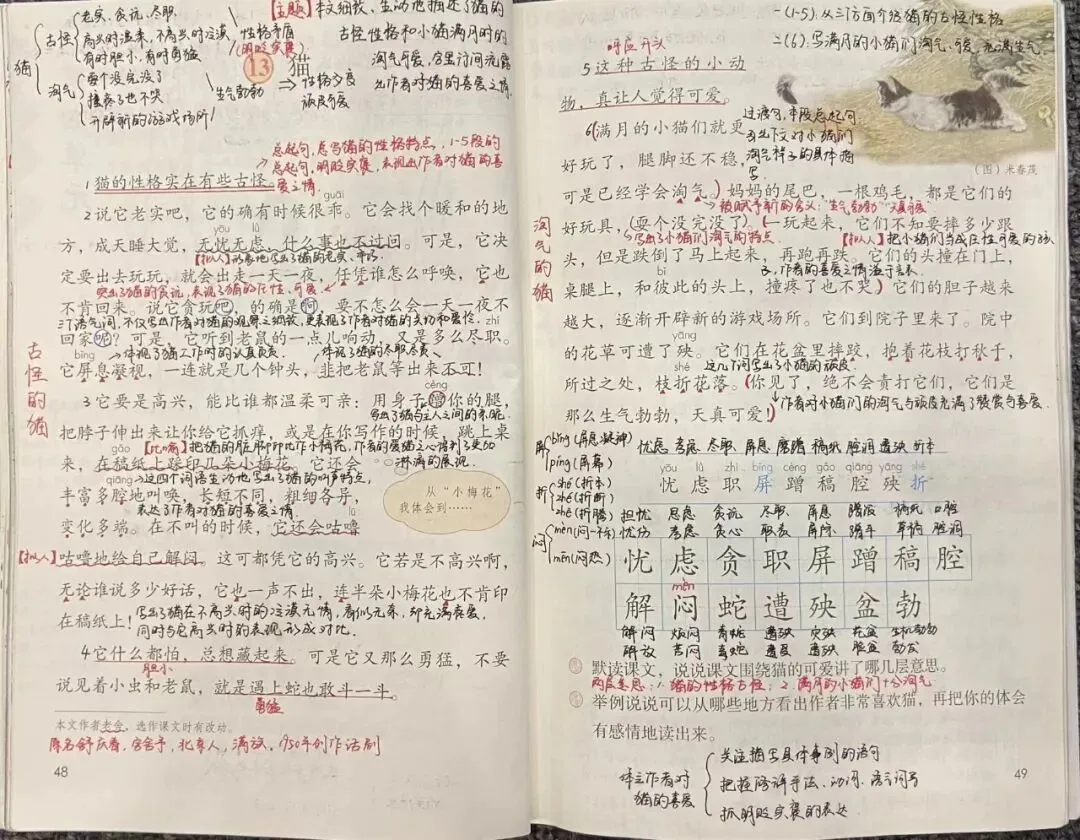 老实、贪玩、尽职
古怪
高兴时温柔，不高兴时冷漠
有时胆小，有时勇猛
性格矛盾
(明贬实褒)
猫
淘气
耍个没完没了
撞疼了也不哭
开辟新的游戏场所
生气勃勃
性格多变
顽皮可爱
13 猫
【主题】本文细致、生动地描述了猫的
古怪性格和小猫满月时的
淘气可爱，字里行间流露
出作者对猫的喜爱之情
总起句，总写猫的性格特点，1-5段的
总起句，明贬实褒，表现出作者对猫的喜
爱之情
1 猫的性格实在有些古怪。
guāi
2 说它老实吧，它的确有时候很乖。它会找个暖和的地
yōu lǜ
方，成天睡大觉，无忧无虑，什么事也不过问。可是，它决
【拟人】形象地写出了猫的老实、乖巧
定要出去玩玩，就会出走一天一夜，任凭谁怎么呼唤，它也
突出了猫的贪玩，表现了猫的任性、可爱
不肯回来。说它贪玩吧，的确是啊，要不怎么会一天一夜不
三个语气词，不仅写出作者对猫的观察之细致，更表现了作者对猫的关切和爱怜
zhí
回家呢？可是，它听到老鼠的一点儿响动，又是多么尽职。
bǐng
体现了猫工作时的认真负责
体现了猫的尽职尽责
它屏息凝视，一连就是几个钟头，非把老鼠等出来不可！
古怪的猫
cèng
3 它要是高兴，能比谁都温柔可亲：用身子蹭你的腿，
写出了猫与主人之间的亲昵
把脖子伸出来让你给它抓痒，或是在你写作的时候，跳上桌
gǎo
【比喻】把猫的脏脚印比作小梅花，作者的爱猫之心得到了更加
淋漓的展现
来，在稿纸上踩印几朵小梅花。它还会
qiāng
这四个词语生动地写出了猫的叫声特点，
丰富多腔地叫唤，长短不同，粗细各异，
表达了作者对猫的喜爱之情
变化多端。在不叫的时候，它还会咕噜
从“小梅花”
我体会到……
【拟人】咕噜地给自己解闷。这可都凭它的高兴。它若是不高兴啊，
无论谁说多少好话，它也一声不出，连半朵小梅花也不肯印
在稿纸上！
写出了猫在不高兴时的冷漠无情，看似无奈，却充满喜爱，
同时与它高兴时的表现形成对比
4 它什么都怕，总想藏起来。可是它又那么勇猛，不要
胆小
说见着小虫和老鼠，就是遇上蛇也敢斗一斗。
勇猛
本文作者老舍，选作课文时有改动。
原名舒庆春，字舍予，北京人，满族，1950年创作话剧
48
一(1-5)：从三个方面介绍猫的古怪性格
二(6)：写满月的小猫们淘气、可爱、充满生气
呼应开头
5 这种古怪的小动
物，真让人觉得可爱。
过渡句，本段总起句
引出下文对小猫们
淘气样子的具体描
写
6 满月的小猫们就更
好玩了，腿脚还不稳，
(图) 米春茂
可是已经学会淘气。妈妈的尾巴，一根鸡毛，都是它们的
被赋予新的含义：“生气勃勃”“天真可爱”
好玩具，耍个没完没了。一玩起来，它们不知要摔多少跟
写出了小猫们淘气的特点
【拟人】把小猫们当成任性可爱的孩
子，作者的喜爱之情溢于言表
头，但是跌倒了马上起来，再跑再跌。它们的头撞在门上，
bǐ
桌腿上，和彼此的头上，撞疼了也不哭。它们的胆子越来
越大，逐渐开辟新的游戏场所。它们到院子里来了。院中
yāng
的花草可遭了殃。它们在花盆里摔跤，抱着花枝打秋千，
shé
这几个词写出了小猫的顽皮
所过之处，枝折花落。你见了，绝不会责打它们，它们是
那么生气勃勃，天真可爱！
作者对小猫们的淘气与顽皮充满了赞赏与喜爱
淘气的猫
屏
bǐng(屏息凝神)
píng(屏幕)
折
shé(折本)
zhé(折断)
zhē(折腾)
闷
mèn(闷闷不乐)
mēn(闷热)
忧虑 考虑 尽职 屏息 磨蹭 稿纸 腔调 遭殃 折本
yōu lǜ zhí bǐng cèng gǎo qiāng yāng shé
忧 虑 职 屏 蹭 稿 腔 殃 折
担忧 思虑 贪玩 尽职 屏息 蹭破 稿纸 口腔
忧伤 考虑 贪心 职责 屏障 蹭车 草稿 腔调
忧 虑 贪 职 屏 蹭 稿 腔
mèn
解 闷 蛇 遭 殃 盆 勃
解闷 烦闷 青蛇 遭殃 灾殃 花盆 生机勃勃
解放 苦闷 毒蛇 遭遇 遭殃 脸盆 勃发
默读课文，说说课文围绕猫的可爱讲了哪几层意思。
两层意思：1. 猫的性格古怪；2. 满月的小猫们十分淘气
举例说说可以从哪些地方看出作者非常喜欢猫，再把你的体会
有感情地读出来。
体会作者对
猫的喜爱
关注描写具体事例的语句
把握修辞手法、动词、语气词等
抓明贬实褒的表达
49